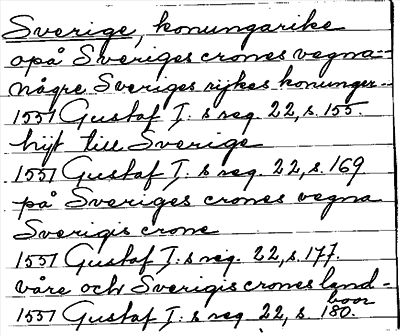 Sverige, konungarike
opå Sveriges crones vegna=
någre Sveriges rijkes konunger=
1551 Gustaf I:s reg. 22, s. 155.
hijt till Sverige
1551 Gustaf I:s reg. 22, s. 169
på Sveriges crones vegna
Sverigis crone
1551 Gustaf I:s reg. 22, s. 177.
våre och Sverigis crones land=
boor
1551 Gustaf I:s reg. 22, s. 180.